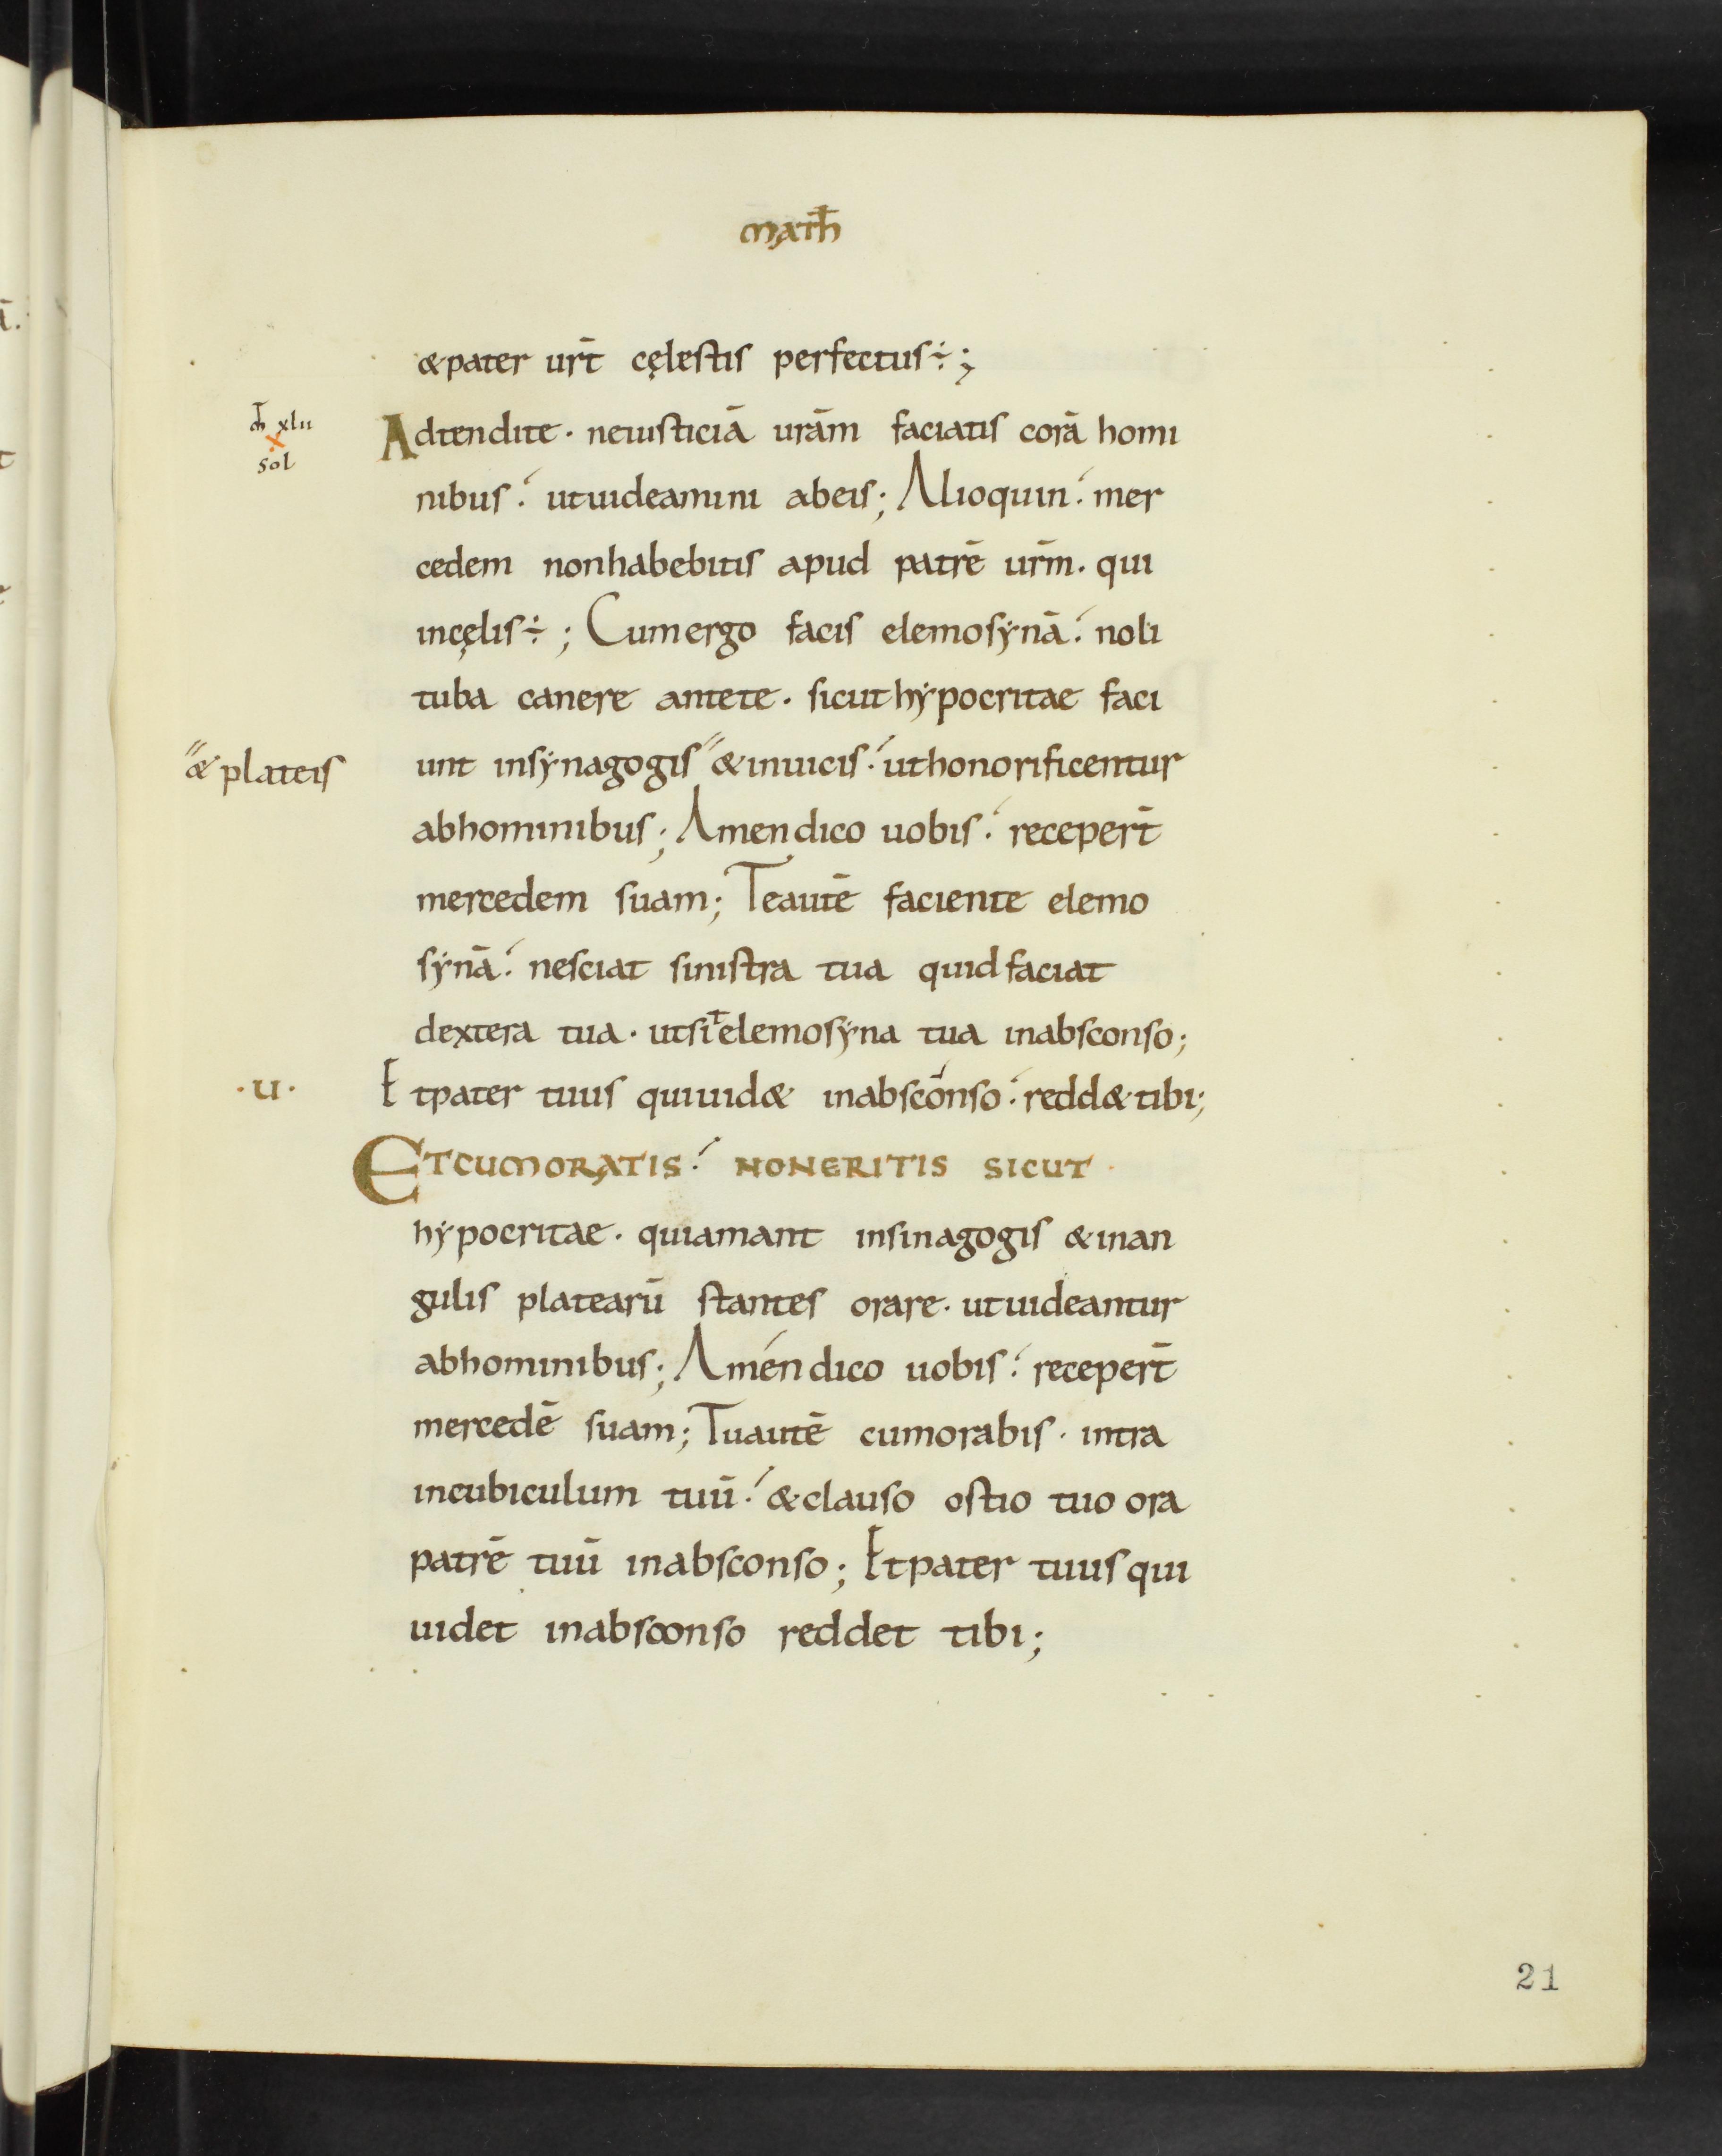 math̄
& pater ur̄t cęlestis perfectus ÷;
m̄ xlii
x
sol
Adtendite · neiusticiā urām faciatis corā homi
nibus ·́ utuideamini abeis; Alioquin ·́ mer
cedem nonhabebitis apud patrē ur̄m · qui
incęlis ÷; Cumergo facis elemosẏnā ·́ noli
tuba canere antete · sicuthẏpocritae faci
unt insẏnagogis ″ &inuicis ·́ uthonorificentur
″& plateis
abhominibus; Amendico uobis ·́ receper̄t
mercedem suam; Teautē faciente elemo
sẏnā ·́ nesciat sinistra tua quidfaciat
dextera tua · utsiͭelemosẏna tua inabsconso;
·u·
Etpater tuus quiuid& inabscónso ·́ redd& tibi;
ETCUMORATIS ·́ NONERITIS SICUT ·
hẏpocritae · quiamant insinagogis &inan
gulis platearū stantes orare · utuideantur
abhominibus; Améndico uobis ·́ receper̄t
mercedē suam; Tuautē cumorabis · intra
incubiculum tuū ·́ &clauso ostio tuo ora
patrē tuū inabsconso; Etpater tuus qui
uidet inabsconso reddet tibi;
21